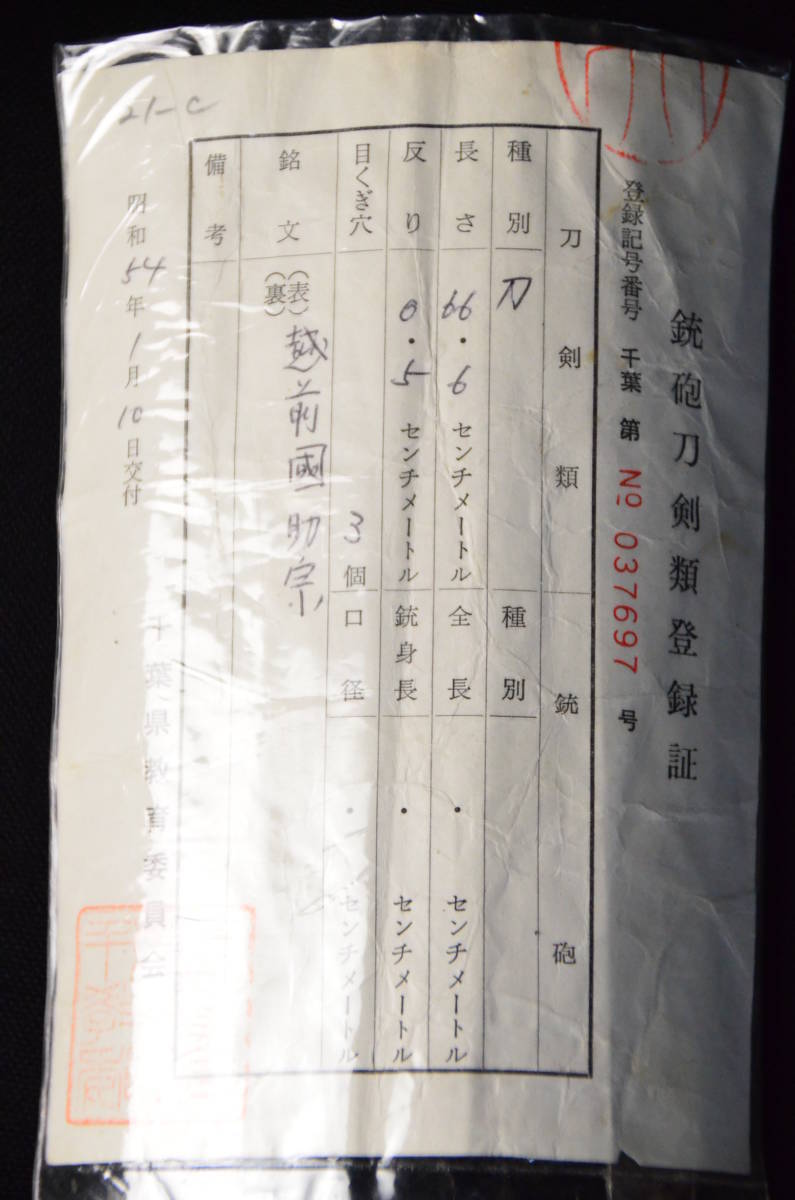 銃砲刀剣類登録証
登録記号番号 千葉 第 № 037697 号
刀剣類 銃砲
種別 刀 種別
長さ 66・6 センチメートル 全長 ・ センチメートル
反り 0・5 センチメートル 銃身長 ・ センチメートル
目くぎ穴 3個 口径 ・ センチメートル
銘文 (表) 越前國助宗
(裏)
備考
昭和54年1月10日交付
千葉県教育委員会
21-C